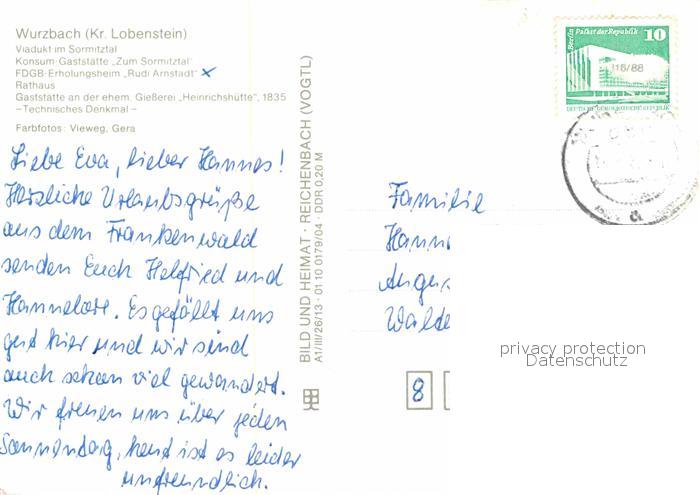 Wurzbach (Kr. Lobenstein)
Viadukt im Sormitztal
Konsum-Gaststätte „Zum Sormitztal"
FDGB-Erholungsheim „Rudi Arnstadt" x
Rathaus
Gaststätte an der ehem. Gießerei „Heinrichshütte", 1835
– Technisches Denkmal –
Farbfotos: Vieweg, Gera
Liebe Eva, lieber Hannes!
Herzliche Urlaubsgrüße
aus dem Frankenwald
senden Euch Helfried und
Hannelore. Es gefällt uns
gut hier und wir sind
auch schon viel gewandert.
Wir freuen uns über jeden
Sonnentag, heut ist es leider
unfreundlich.
BILD UND HEIMAT · REICHENBACH (VOGTL)
A1/III/26/13 · 01 10 0179/04 · DDR 0,20 M
Berlin Palast der Republik
10
116/88
DEUTSCHE DEMOKRATISCHE REPUBLIK
Familie
Hann
Augus
Walde
8
privacy protection
Datenschutz